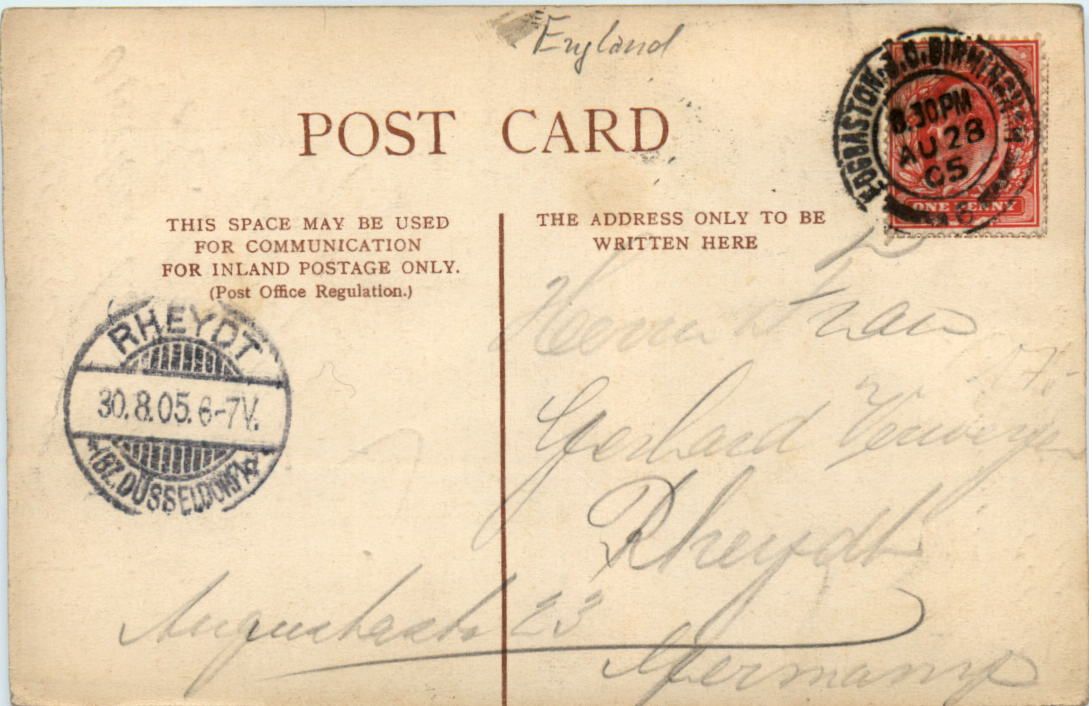 England
POST CARD
EDGBASTON.S.O.BIRMINGHAM
8.30PM
AU 28
05
ONE PENNY
THIS SPACE MAY BE USED
FOR COMMUNICATION
FOR INLAND POSTAGE ONLY.
(Post Office Regulation.)
THE ADDRESS ONLY TO BE
WRITTEN HERE
RHEYDT
30.8.05.6-7V.
(BZ.DÜSSELDORF)
Herrn Franz
Gerhard
Rheydt
Augustastr 23
Germany